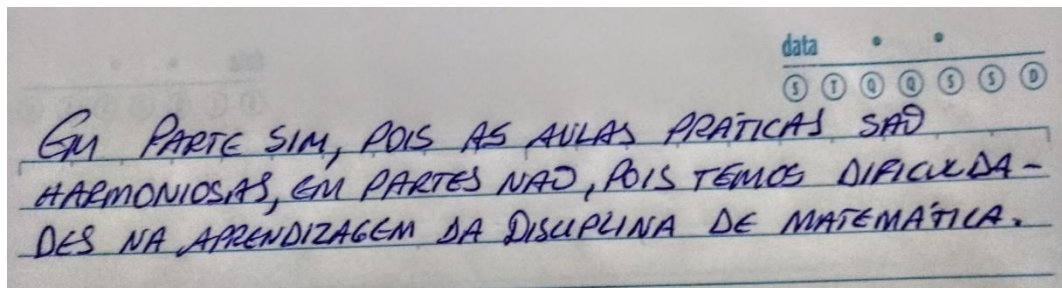 data
S T Q Q S S D
EM PARTE SIM, POIS AS AULAS PRÁTICAS SÃO
HARMONIOSAS, EM PARTES NÃO, POIS TEMOS DIFICULDA-
DES NA APRENDIZAGEM DA DISCIPLINA DE MATEMÁTICA.